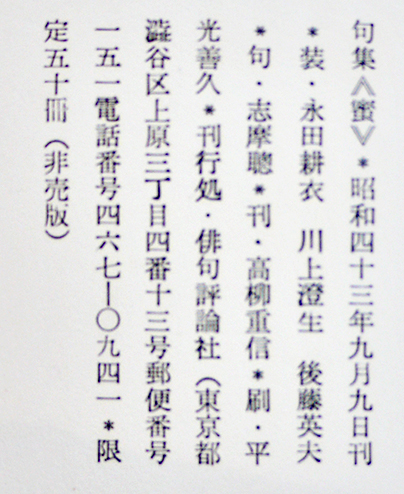 句集《蜜》＊昭和四十三年九月九日刊
＊装・永田耕衣　川上澄生　後藤英夫
＊句・志摩聰＊刊・高柳重信＊刷・平
光善久＊刊行処・俳句評論社（東京都
澁谷区上原三丁目四番十三号郵便番号
一五一電話番号四六七―〇九四一＊限
定五十冊（非売版）